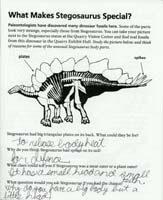 What Makes Stegosaurus Special?
Paleontologists have discovered many dinosaur fossils here. Some of the parts
look very strange, especially those from Stegosaurus. You can take your picture
next to the Stegosaurus statue at the Quarry Visitor Center and find real fossils from
this dinosaur in the Quarry Exhibit Hall. Study the picture below and think
of reasons for some of the unusual Stegosaurus body parts.
plates
spikes
Stegosaurus had big triangular plates on its back. What could they be for?
to release body heat
for defence
What clues could tell you if Stegosaurus was a meat eater or a plant eater?
to have a small head and small teeth
What would you ask Stegosaurus if you had the chance?
why do you have a big body but a
little head?